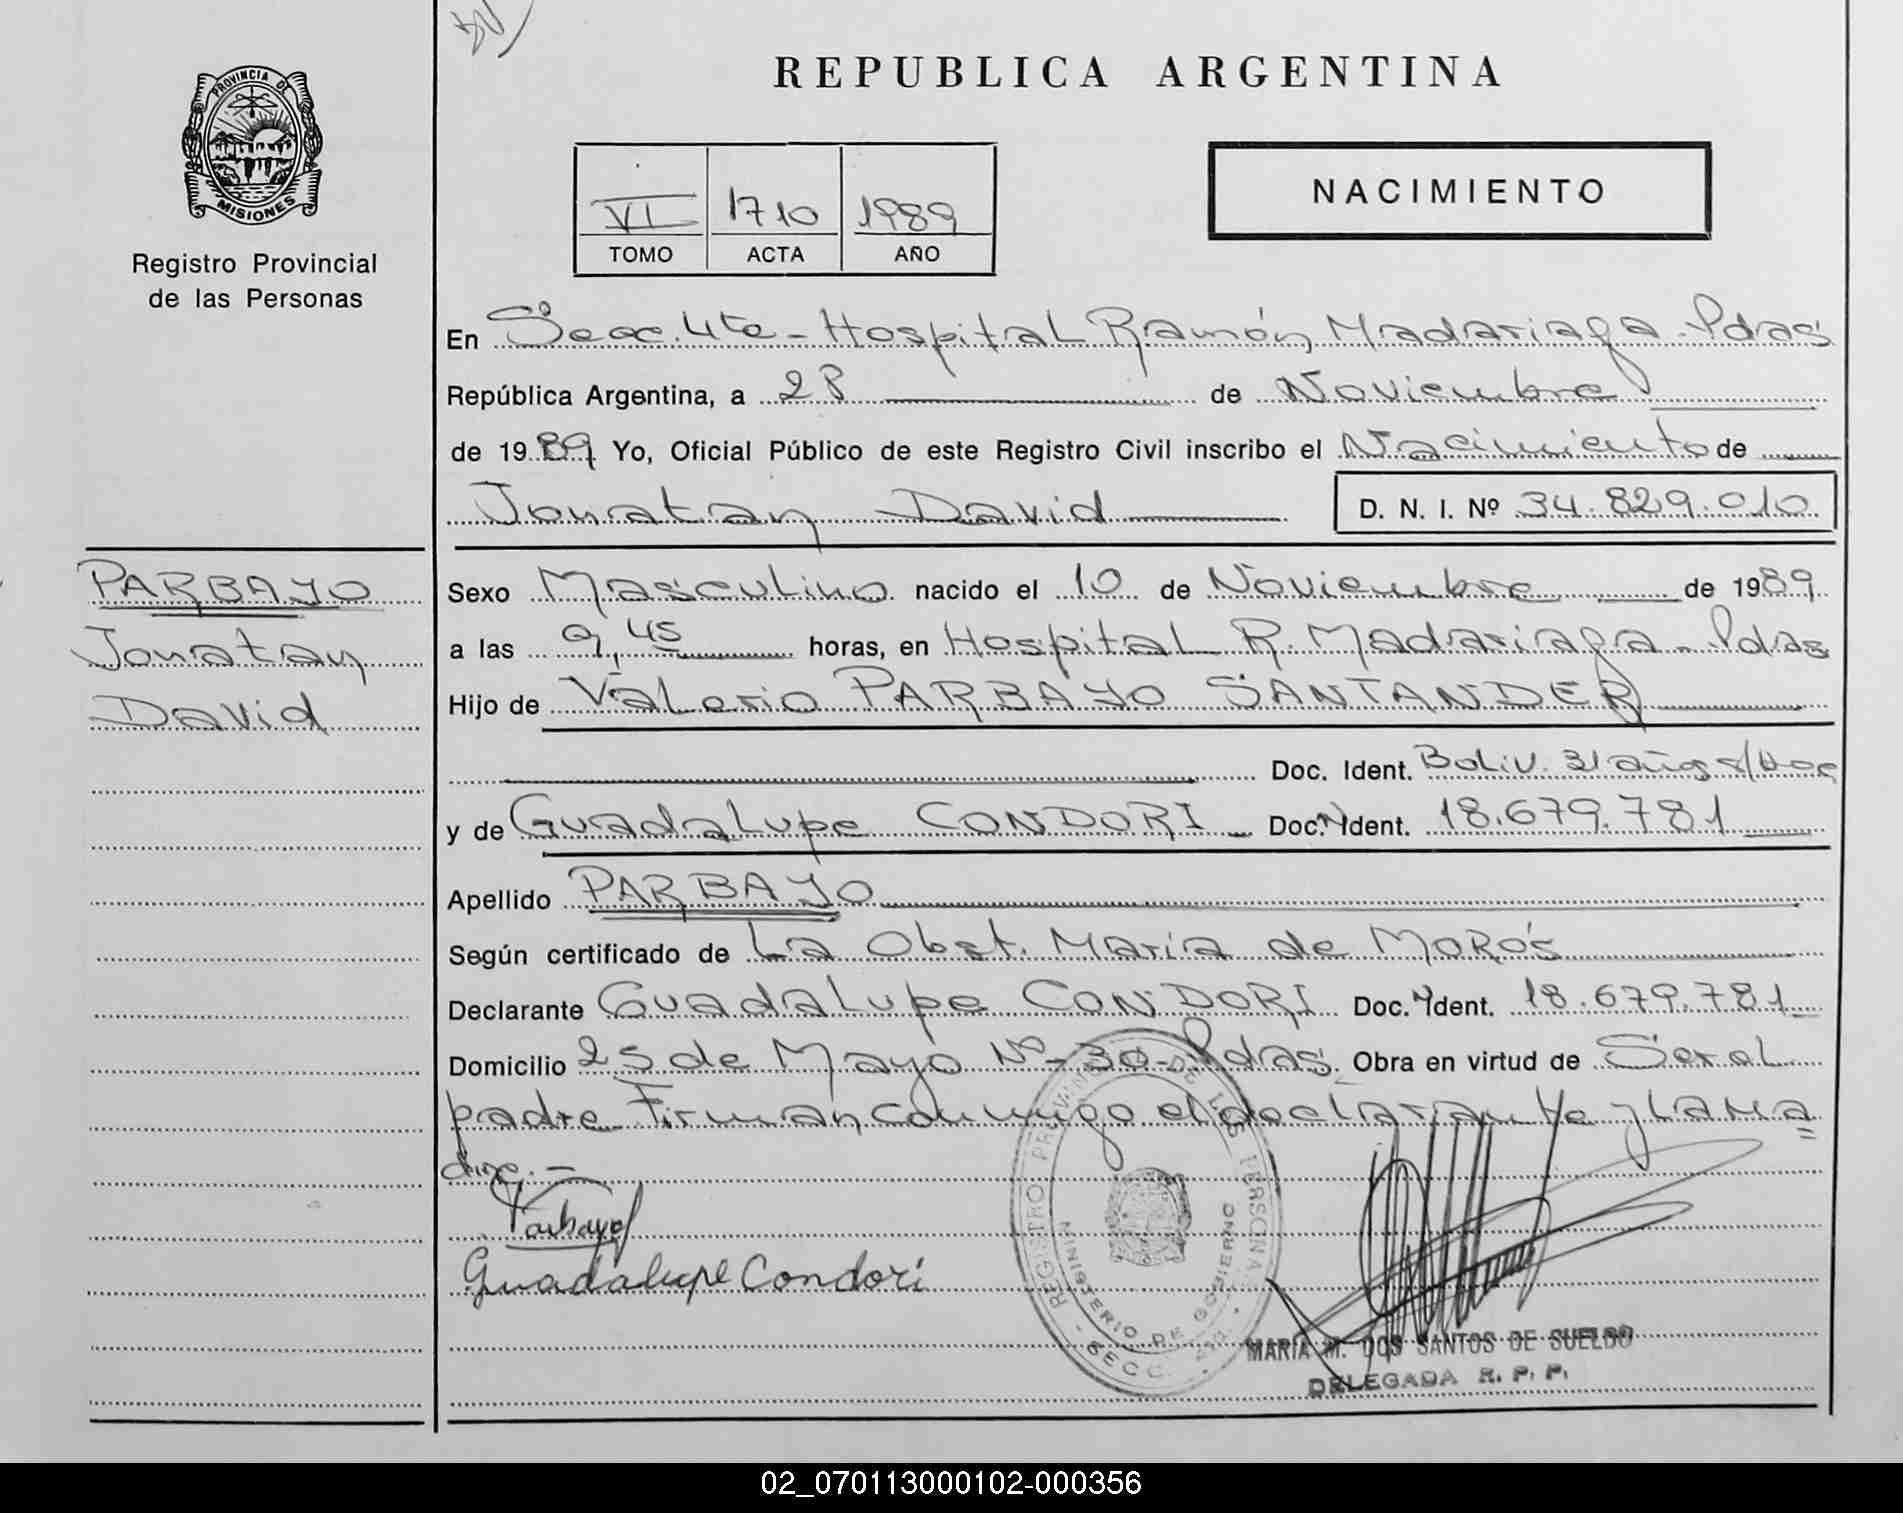 PROVINCIA DE
MISIONES
Registro Provincial
de las Personas
PARBAJO
Jonatan
David
REPUBLICA ARGENTINA
VI 1710 1989
TOMO ACTA AÑO
NACIMIENTO
En Secc. 4ta - Hospital Ramón Madariaga - Pdas
República Argentina, a 28 de Noviembre
de 1989 Yo, Oficial Público de este Registro Civil inscribo el Nacimiento de
Jonatan David D. N. I. Nº 34.829.010
Sexo Masculino nacido el 10 de Noviembre de 1989
a las 9,45 horas, en Hospital R. Madariaga - Pdas
Hijo de Valerio PARBAJO SANTANDER
Doc. Ident. Boliv. 31 años s/Doc
y de Guadalupe CONDORI Doc. N Ident. 18.679.781
Apellido PARBAJO
Según certificado de La Obst. María de Moro's
Declarante Guadalupe CONDORI Doc. N Ident. 18.679.781
Domicilio 25 de Mayo Nº 30 - Pdas. Obra en virtud de Ser el
padre Firman conmigo el declarante y La Ma=
dre. -
Parbayo
Guadalupe Condori
REGISTRO PROVINCIAL DE LAS PERSONAS
MINISTERIO DE GOBIERNO
SECC.
MARIA M. DOS SANTOS DE SUELDO
DELEGADA R. P. P.
02_070113000102-000356